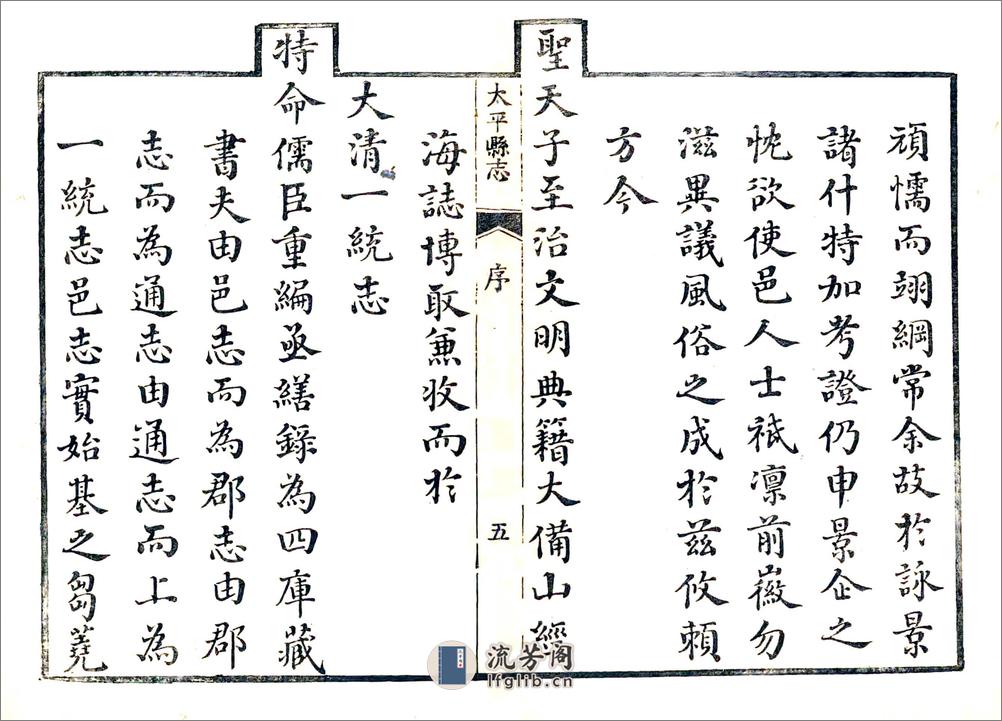 頑懦而翊綱常余故於詠景
諸什特加考證仍申景企之
忱欲使邑人士祇凛前徽勿
滋異議風俗之成於茲攸賴
方今
聖天子至治文明典籍大備山經
太平縣志
序
五
海誌博取兼收而於
大清一統志
特命儒臣重編亟繕錄為四庫藏
書夫由邑志而為郡志由郡
志而為通志由通志而上為
一統志邑志實始基之芻蕘
流芳阁
lfglib.cn